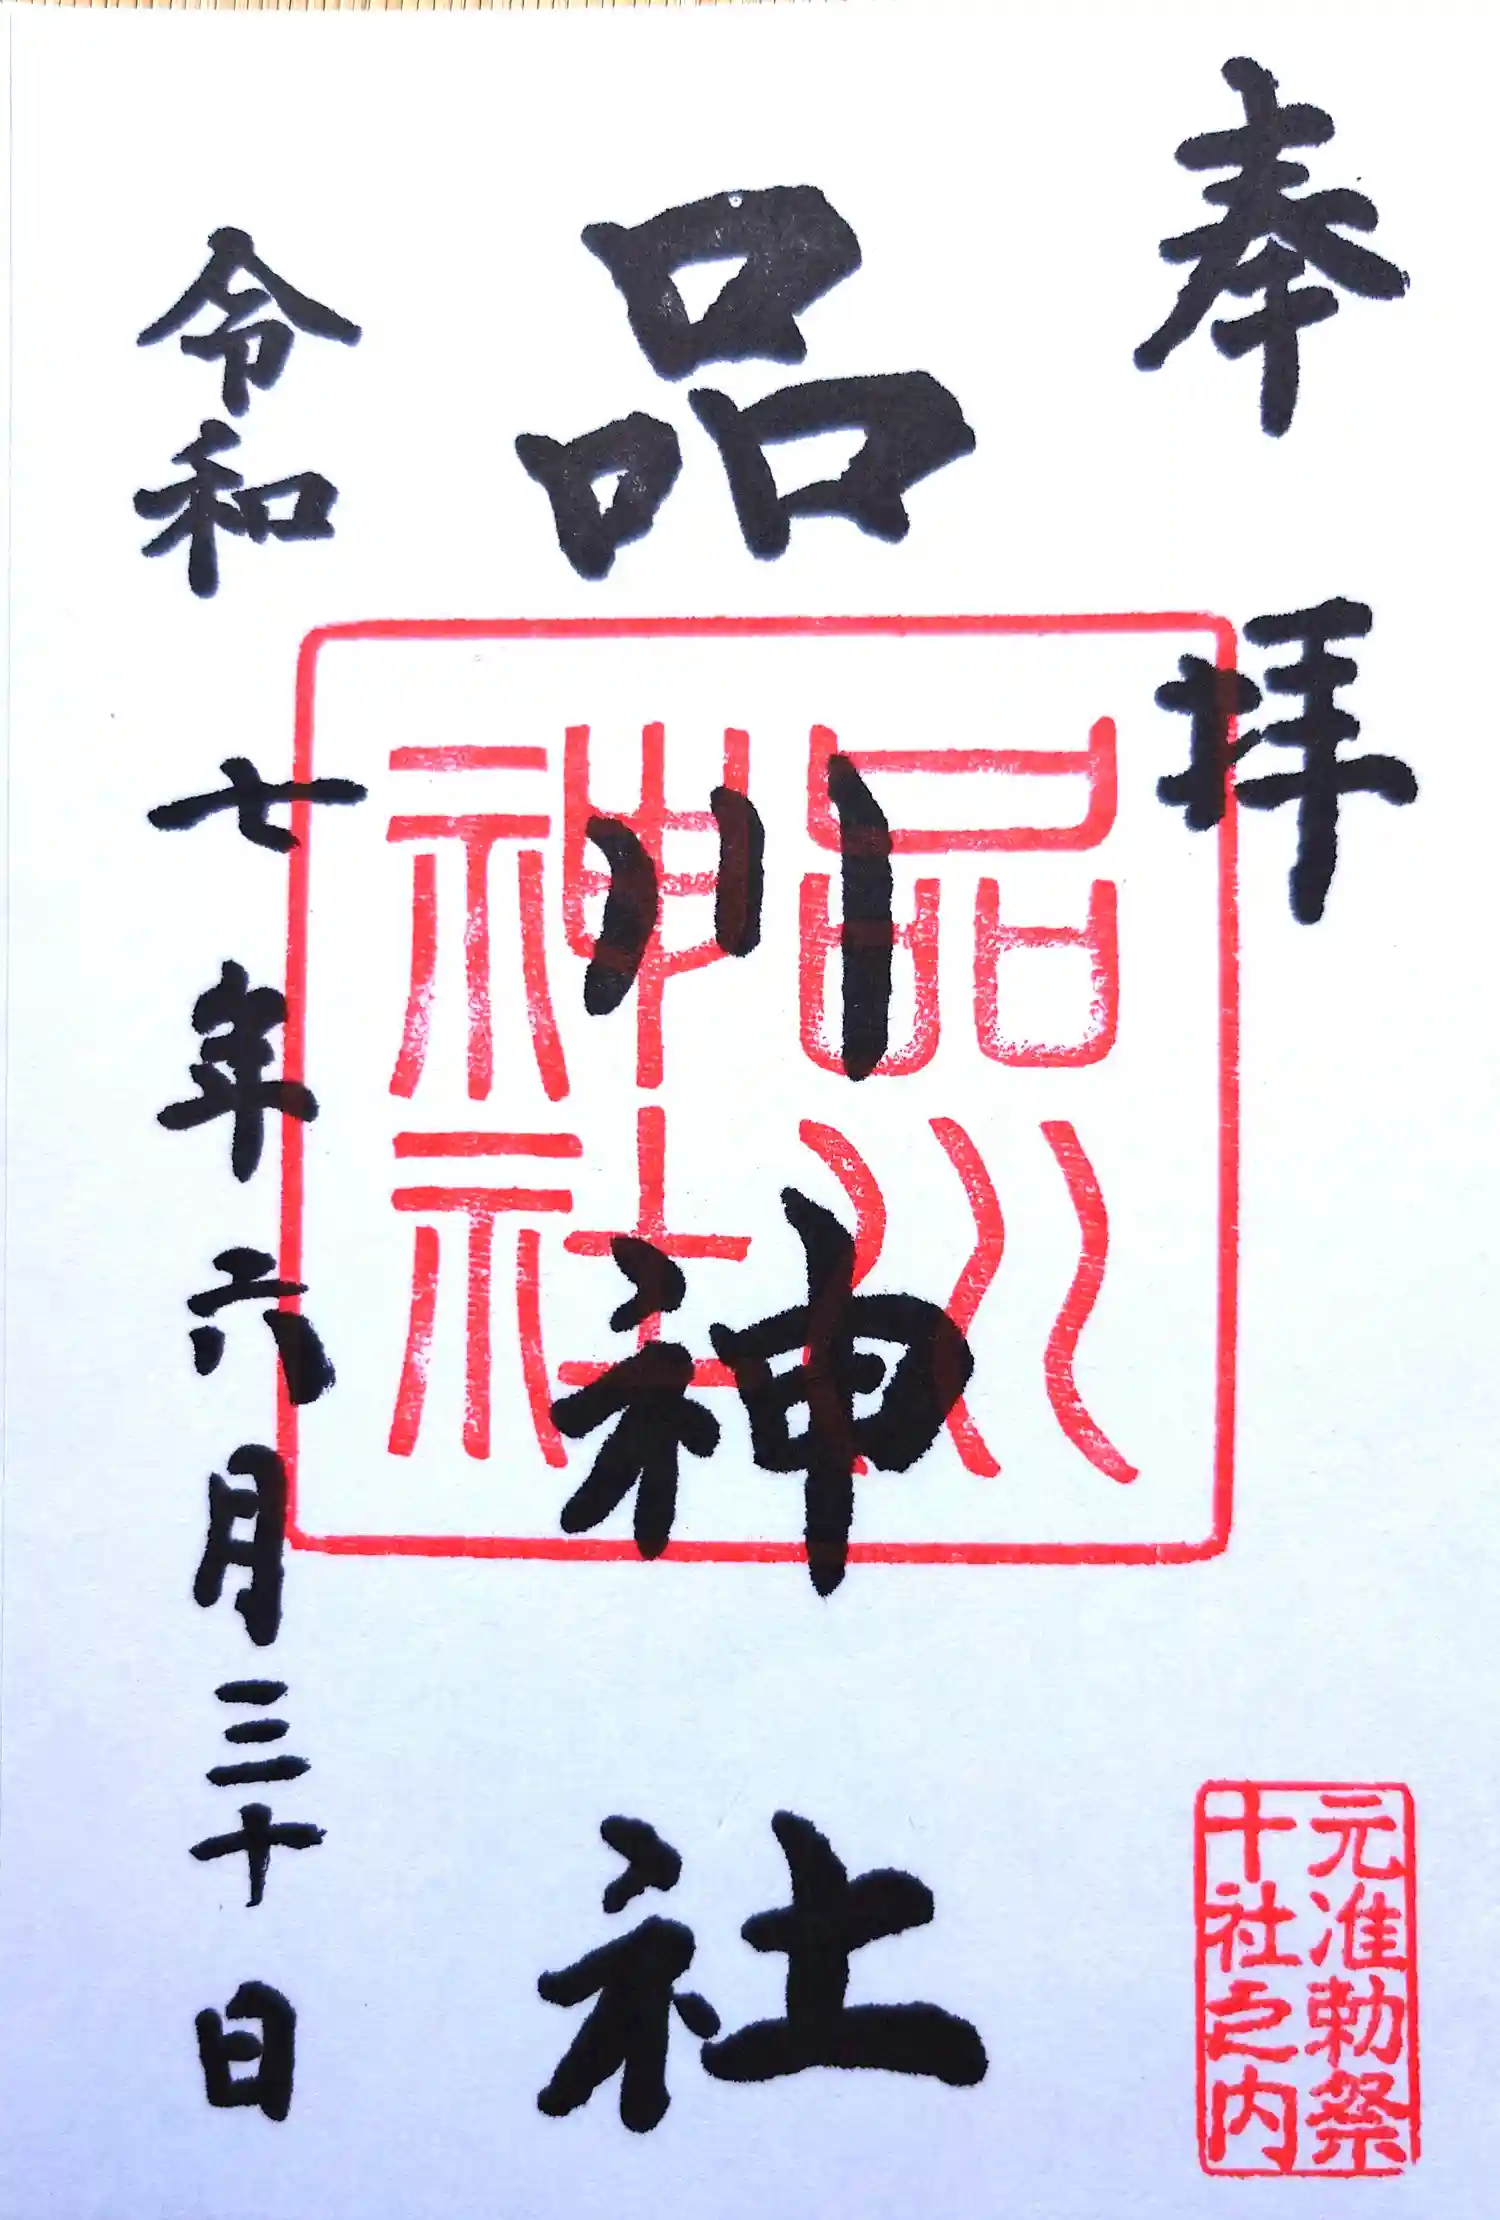 奉拝
品川神社
品川
神社
令和七年六月三十日
元准勅祭
十社之内